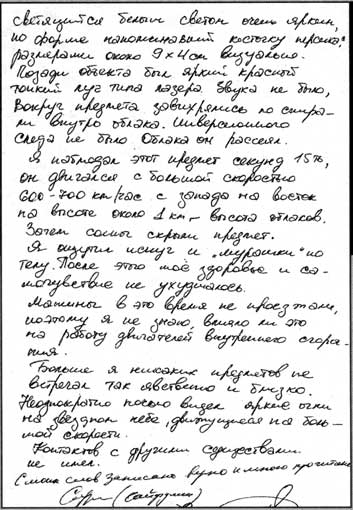 светящийся белым светом очень ярким,
по форме напоминавший косточку персика,
размерами около 9х4 см визуально.
Позади объекта был яркий красный
тонкий луч типа лазера. Звука не было,
Вокруг предмета завихрялись по спира-
ли внутрь облака. Инверсионного
следа не было. Облака он рассеял.
Я наблюдал этот предмет секунд 15ть,
он двигался с большой скоростью
600-700 км/час с запада на восток
на высоте около 1 км, - высота облаков.
Затем сопки скрыли предмет.
Я ощутил испуг и "мурашки" по
телу. После этого моё здоровье и са-
мочувствие не ухудшилось.
Машины в это время не проезжали,
поэтому я не знаю, влияло ли это
на работу двигателей внутреннего сгора-
ния.
Больше я никаких предметов не
встречал так явственно и близко.
Неоднократно после видел яркие огни
на звездном небе, движущиеся на боль-
шой скорости.
Контактов с другими существами
не имел.
С моих слов записано верно и мною прочитано